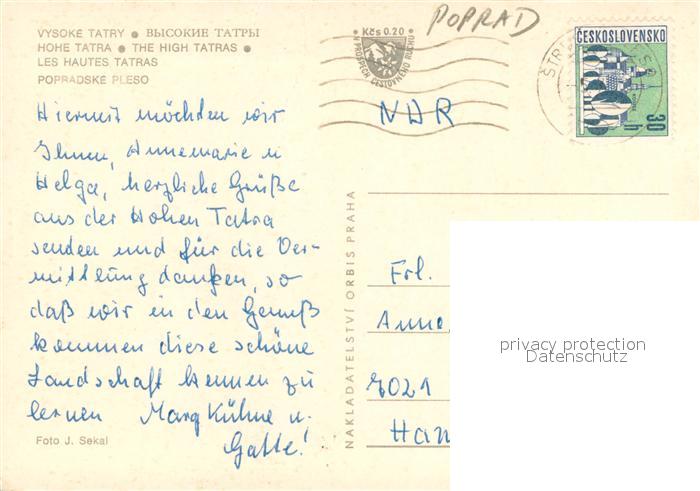 VYSOKÉ TATRY • ВЫСОКИЕ ТАТРЫ
HOHE TATRA • THE HIGH TATRAS •
LES HAUTES TATRAS
POPRADSKÉ PLESO
Hiermit möchten wir
Ihnen, Annemarie u
Helga, herzliche Grüße
aus der Hohen Tatra
senden und für die Ver-
mittlung danken, so
daß wir in den Genuß
kommen diese schöne
Landschaft kennen zu
lernen Marg Kühne u.
Gatte!
Foto J. Sekal
NAKLADATELSTVÍ ORBIS PRAHA
POPRAD
Kčs 0.20
V PROSPĚCH CESTOVNÉHO RUCHU
ČESKOSLOVENSKO
30 h
NDR
Frl.
Anne
7021
Han
privacy protection
Datenschutz